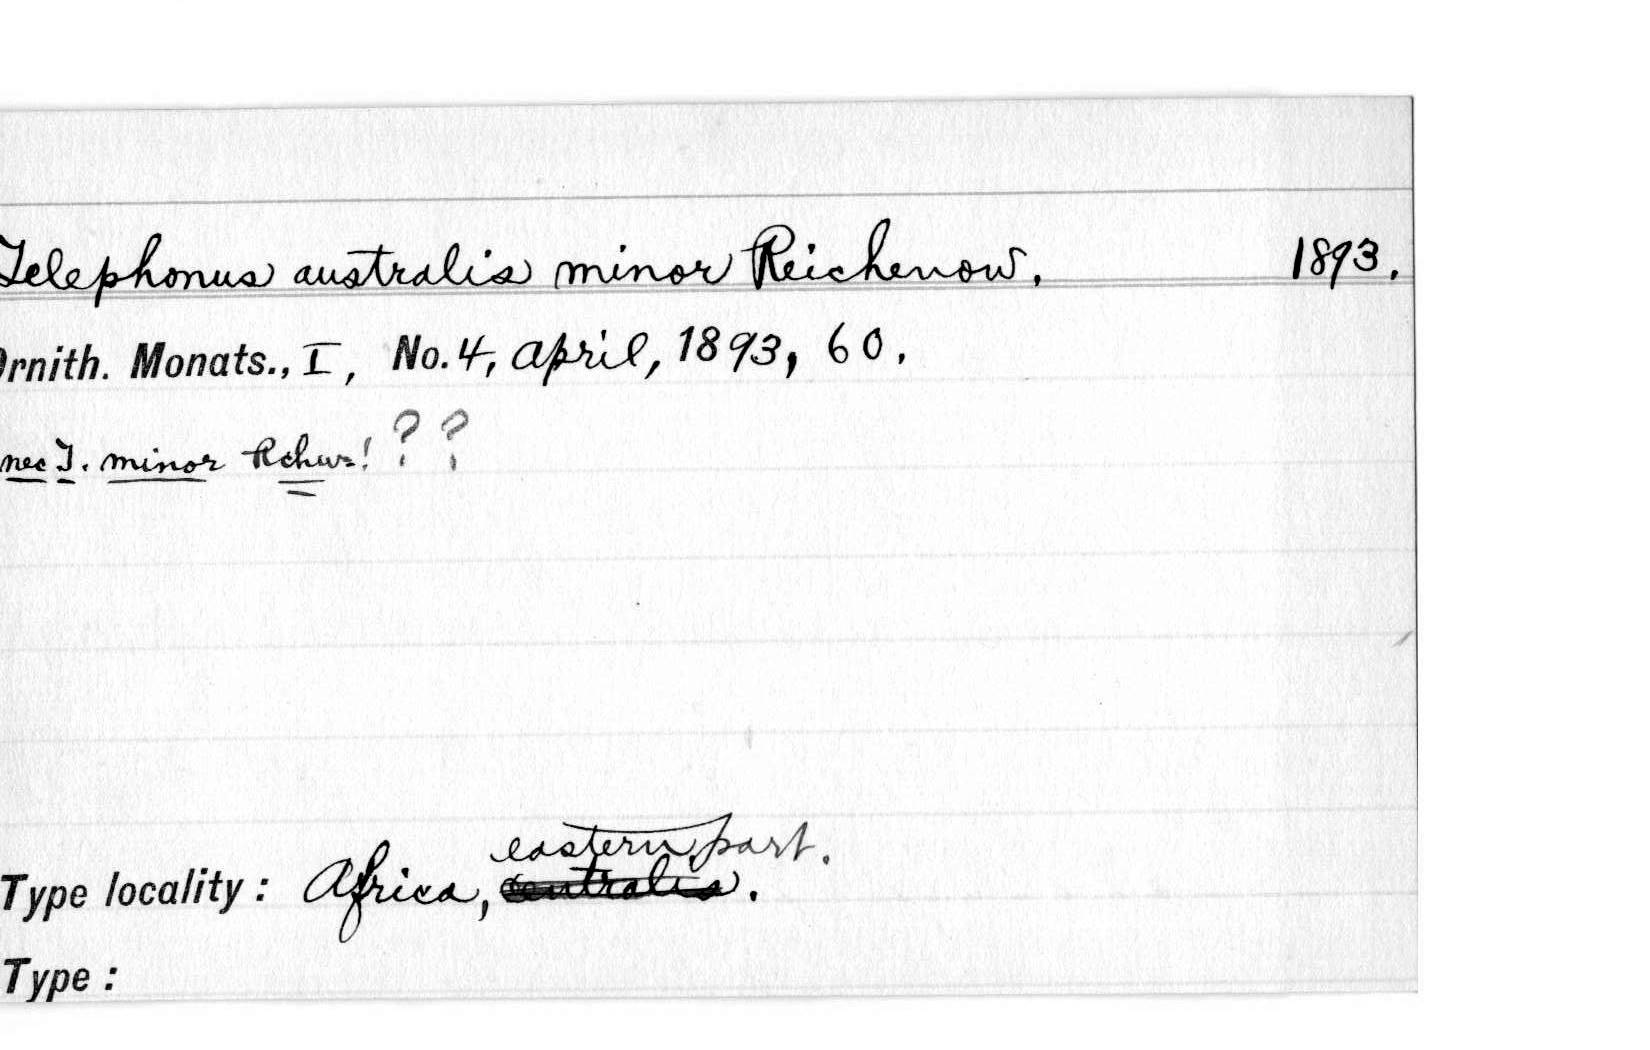 Telephonus australis minor Reichenow. 1893.
Ornith. Monats., I, No. 4, April, 1893, 60.
nec T. minor Rchw! ? ?
eastern part.
Type locality: Africa, centralis.
Type: